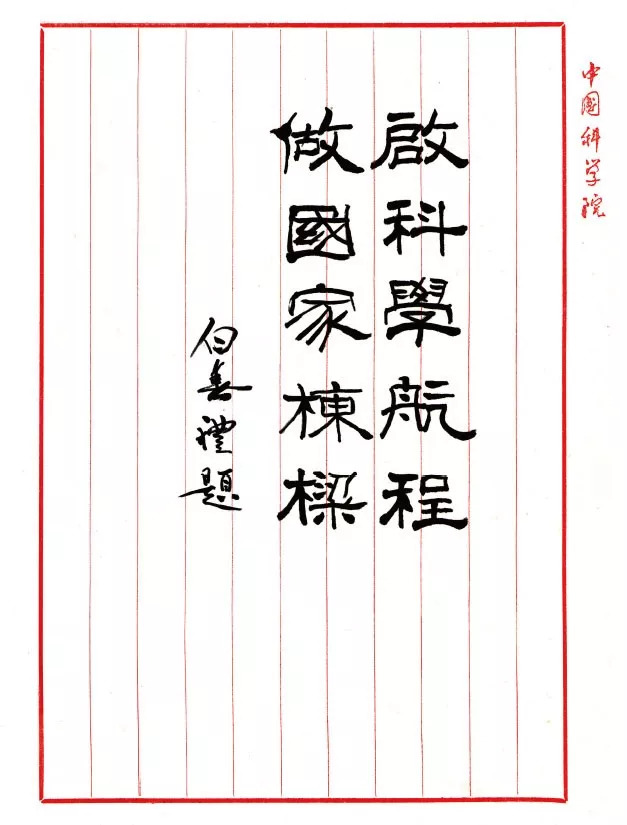 中国科学院
啟科學航程
做國家棟樑
白春禮題